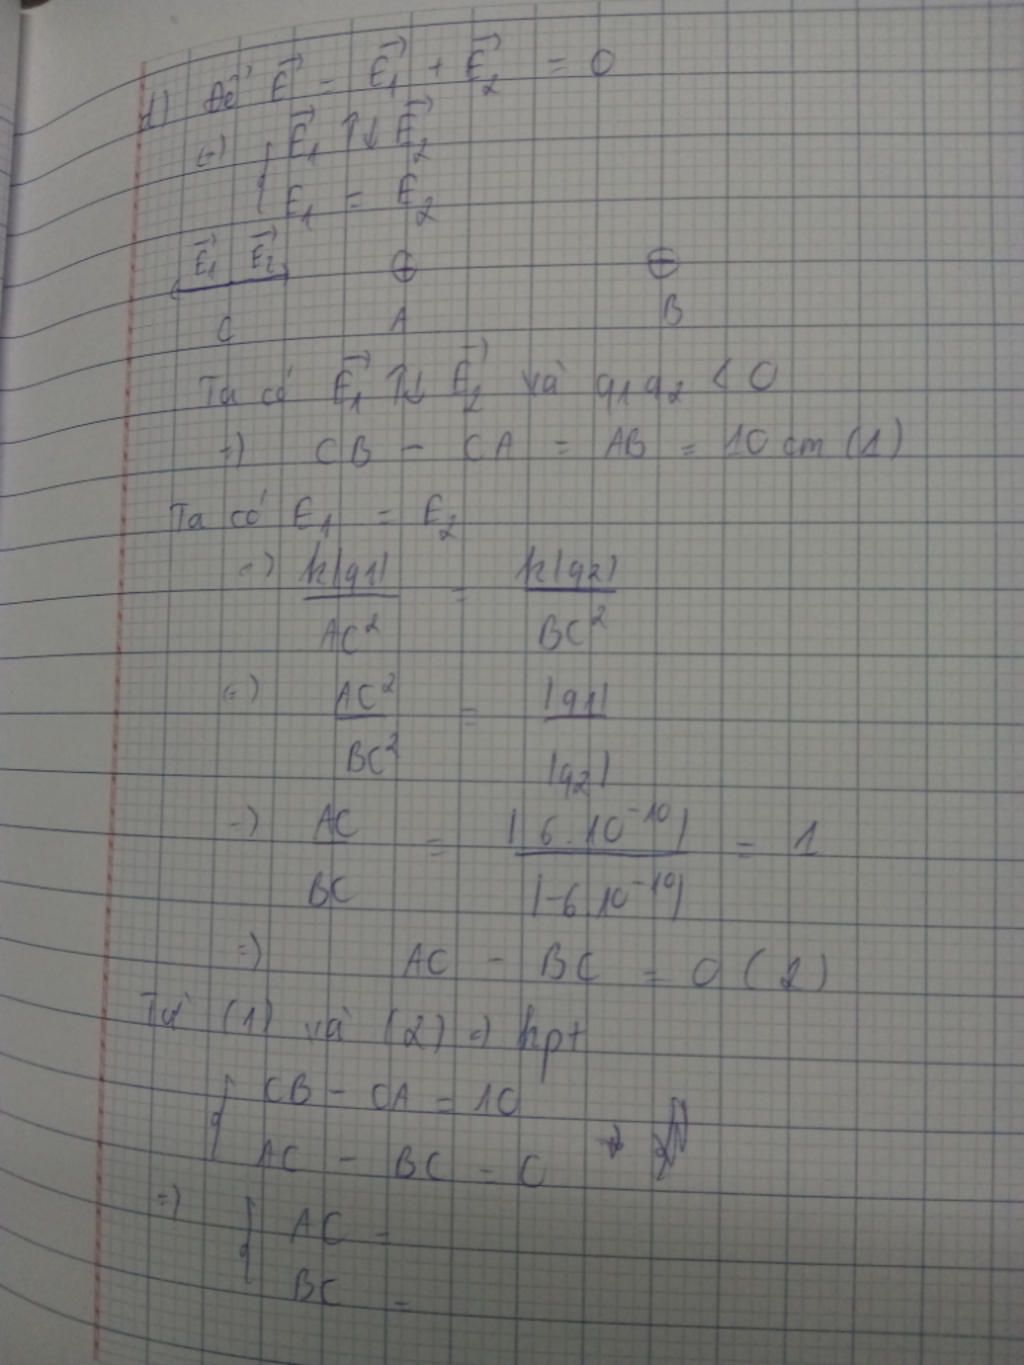 d) Để E⃗ = E⃗₁ + E⃗₂ = 0
(=) { E⃗₁ ↑↓ E⃗₂
E₁ = E₂
E⃗₁ E⃗₂ ⊕ ⊖
C A B
Ta có E⃗₁ ↑↓ E⃗₂ và q₁q₂ < 0
=) CB - CA = AB = 10 cm (1)
Ta có E₁ = E₂
=) k|q1| / AC² = k|q2| / BC²
(=) AC² / BC² = |q1| / |q2|
=) AC / BC = |6.10⁻¹⁰| / |-6.10⁻¹⁰| = 1
=) AC - BC = 0 (2)
Từ (1) và (2) =) hpt
{ CB - CA = 10
AC - BC = 0
=) { AC =
BC =